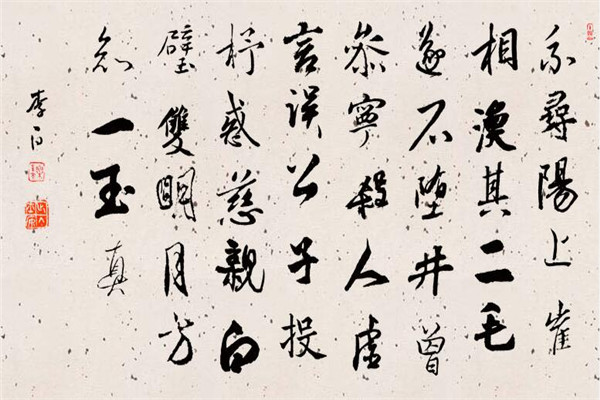 系尋陽上崔
相渙其二毛
遂不堕井曾
叅寧殺人虛
言誤公子投
杼惑慈親白
璧雙明月方
知一玉真
李白